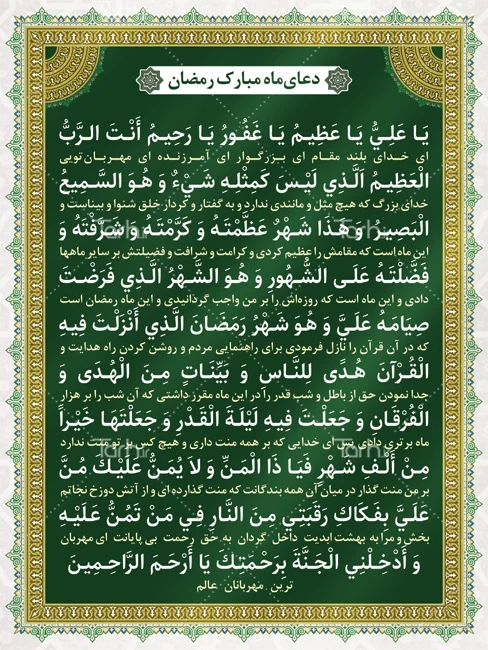 دعای ماه مبارک رمضان
يَا عَلِيُّ يَا عَظِيمُ يَا غَفُورُ يَا رَحِيمُ أَنْتَ الرَّبُّ
ای خدای بلند مقام ای بزرگوار ای آمرزنده ای مهربان تویی
الْعَظِيمُ الَّذِي لَيْسَ كَمِثْلِهِ شَيْءٌ وَ هُوَ السَّمِيعُ
خدای بزرگ که هیچ مثل و مانندی ندارد و به گفتار و کردار خلق شنوا و بیناست و
الْبَصِيرُ وَ هَذَا شَهْرٌ عَظَّمْتَهُ وَ كَرَّمْتَهُ وَ شَرَّفْتَهُ وَ
این ماه است که مقامش را عظیم کردی و کرامت و شرافت و فضیلتش بر سایر ماهها
فَضَّلْتَهُ عَلَى الشُّهُورِ وَ هُوَ الشَّهْرُ الَّذِي فَرَضْتَ
دادی و این ماه است که روزه‌اش را بر من واجب گردانیدی و این ماه رمضان است
صِيَامَهُ عَلَيَّ وَ هُوَ شَهْرُ رَمَضَانَ الَّذِي أَنْزَلْتَ فِيهِ
که در آن قرآن را نازل فرمودی برای راهنمایی مردم و روشن کردن راه هدایت و
الْقُرْآنَ هُدًى لِلنَّاسِ وَ بَيِّنَاتٍ مِنَ الْهُدَى وَ
جدا نمودن حق از باطل و شب قدر را در این ماه مقرر داشتی که آن شب را بر هزار
الْفُرْقَانِ وَ جَعَلْتَ فِيهِ لَيْلَةَ الْقَدْرِ وَ جَعَلْتَهَا خَيْراً
ماه برتری دادی پس ای خدایی که بر همه منت داری و هیچ کس بر تو منت ندارد
مِنْ أَلْفِ شَهْرٍ فَيَا ذَا الْمَنِّ وَ لَا يُمَنُّ عَلَيْكَ مُنَّ
بر من منت گذار در میان آن همه بندگانت که منت گذارده‌ای و از آتش دوزخ نجاتم
عَلَيَّ بِفَكَاكِ رَقَبَتِي مِنَ النَّارِ فِي مَنْ تَمُنُّ عَلَيْهِ
بخش و مرا به بهشت ابدیت داخل گردان به حق رحمت بی پایانت ای مهربان
وَ أَدْخِلْنِي الْجَنَّةَ بِرَحْمَتِكَ يَا أَرْحَمَ الرَّاحِمِينَ
ترین مهربانان عالم